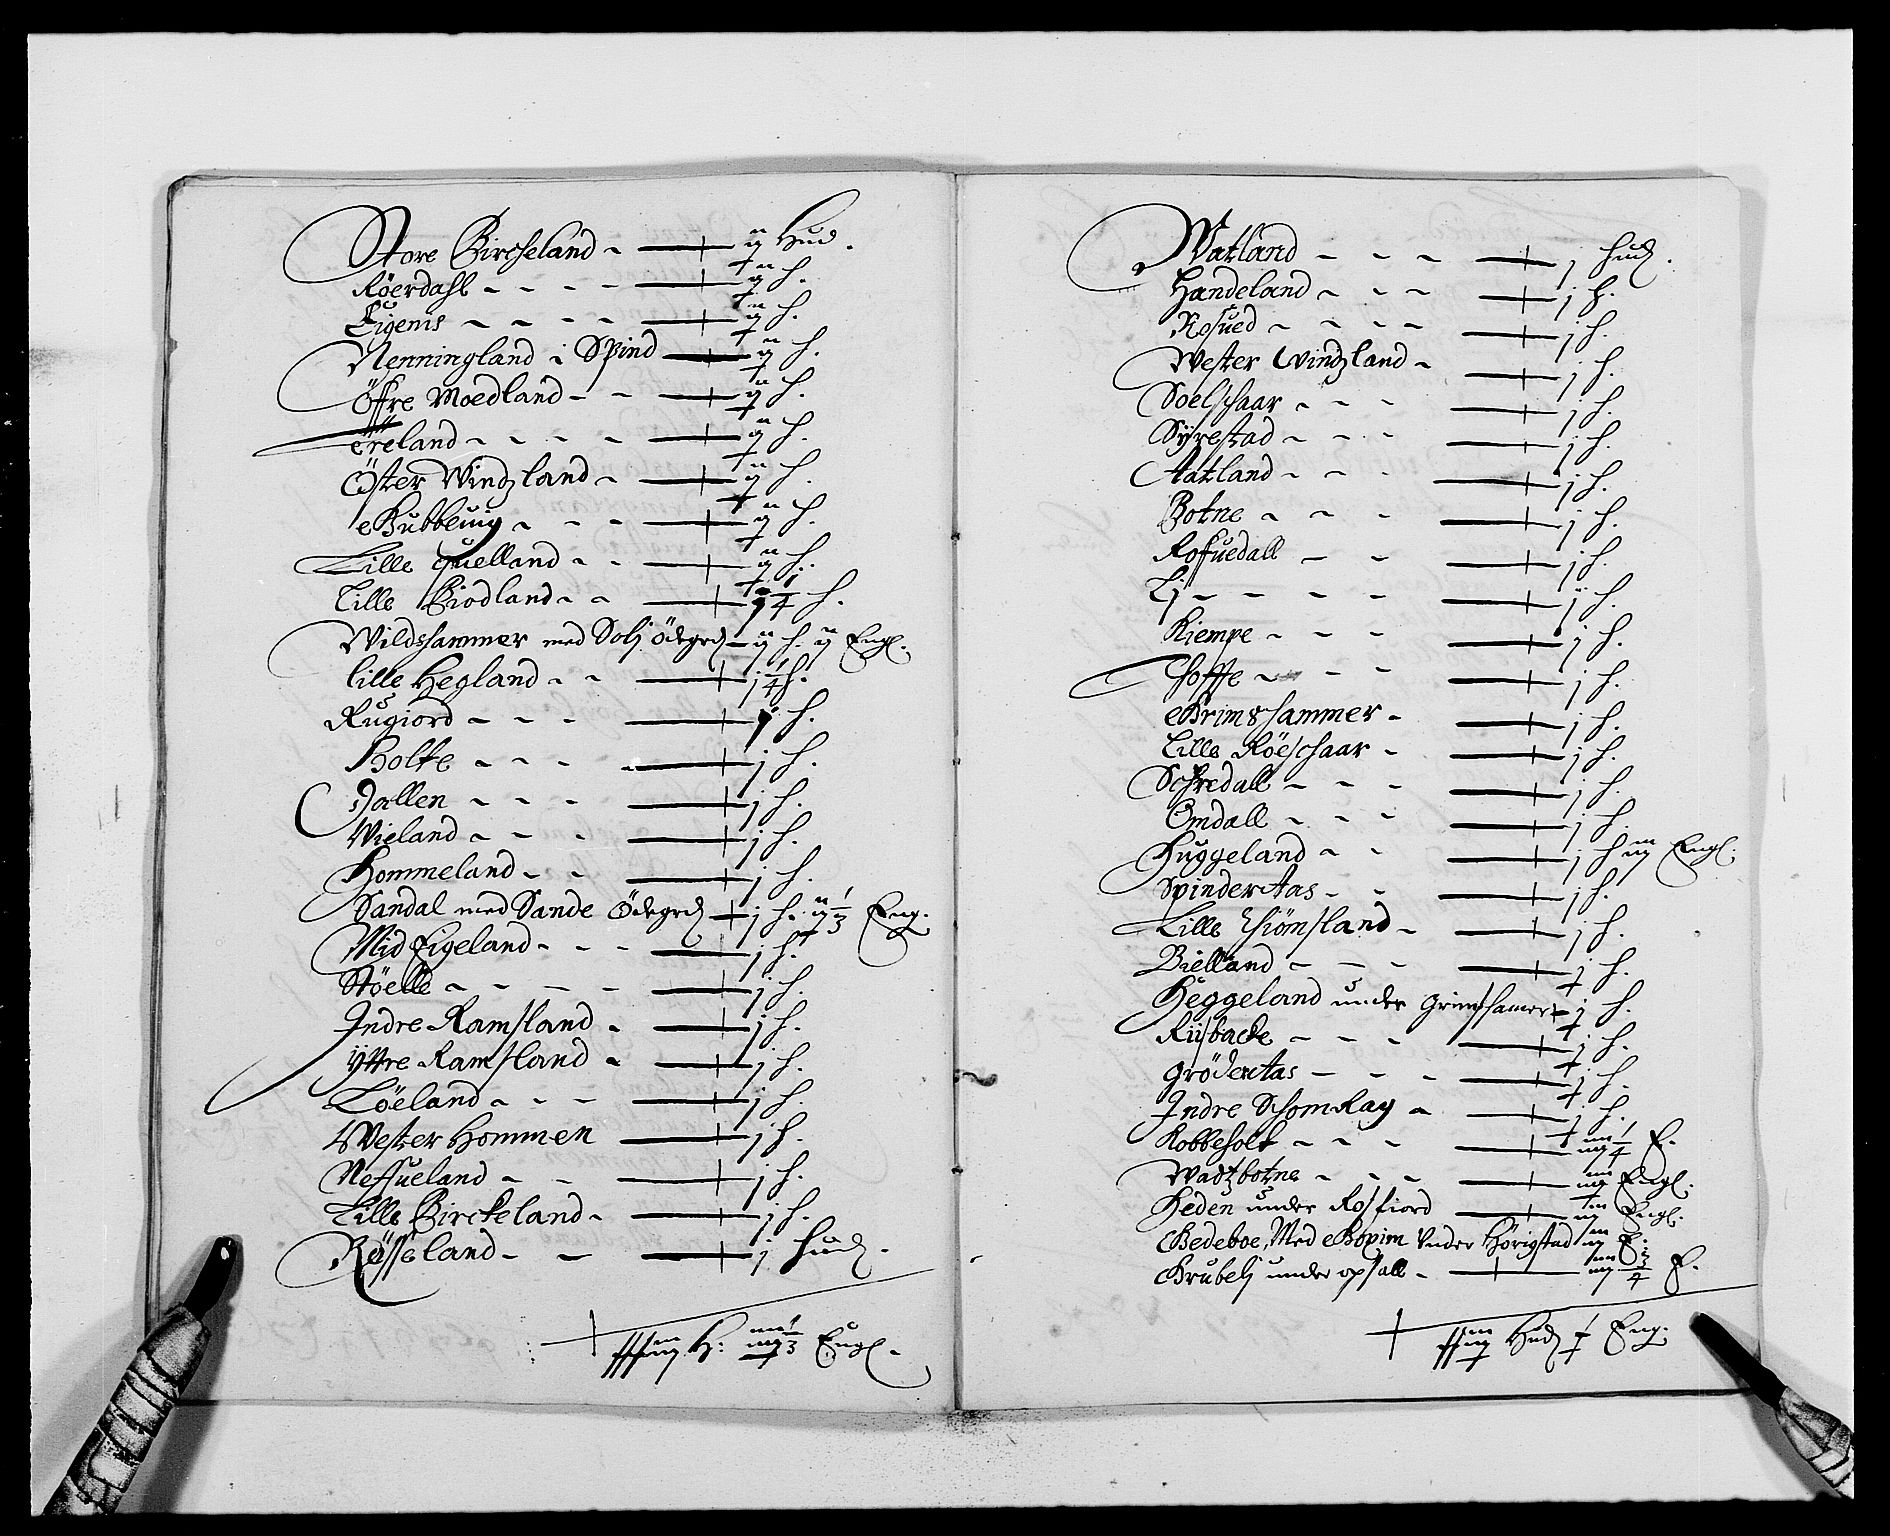 Store Bircheland - ij Hud.
Röerdahl - - - - ij h.
Eigenis - - - - ij h.
Nenningland i Spind ij h.
Öffre Moedland - - ij h.
Ereland - - - - ij h.
Öster Windzland - ij h.
Gubbeuig - - - ij h.
Lille Quelland - - ij h.
Lille Biodland - - j 1/4 h.
Wildshammer med Solj Ödegrd ij h. ij Engl.
lille Hegland - - j 1/4 h.
Rugiord - - - j h.
Holte - - - j h.
Dallen - - - j h.
Wieland - - - j h.
Hommeland - - j h.
Sandal med Sande Ödegrd j h. ij 1/3 Eng.
Mid Eigeland - - - j h.
Stöelle - - - - j h.
Indre Ramsland - j h.
Ÿttre Ramsland - j h.
Löeland - - - j h.
Wester Hommen j h.
Neffueland - - j h.
Lille Birckeland - j h.
Rösseland - - j Hud.
H: 1/3 Engl.
Watland - - - j Hud.
Handeland - - - j h.
Rosued - - - - j h.
Wester Windzland - j h.
Soelschaar - - - j h.
Sÿrestad - - - j h.
Aatland - - - j h.
Botne - - - j h.
Roffuedall - - j h.
Lj - - - - j h.
Kiempe - - - j h.
Choffe - - - j h.
Grimshammer - j h.
Lille Röeschaar - j h.
Schredall - - - j h.
Omdall - - - j h.
Huggeland - - j h iij Engl.
Spinderetaas - - j h.
Lille Thiömsland - j h.
Bielland - - - j h.
Heggeland under Grimshamer j h.
Riisbacke - - - j h.
Grödemtaas - - - j h.
Indre Schomrag - j h.
Robbeholt - - - iij 1/4 E.
Wadtzbotne - - - iij Engl.
Heden under Rosfiord iij Engl.
Bedeboe, Med Gopim Vnder Hörigstad iij E.
Grubelj under opsall - iij 3/4 E.
Hud Eng.